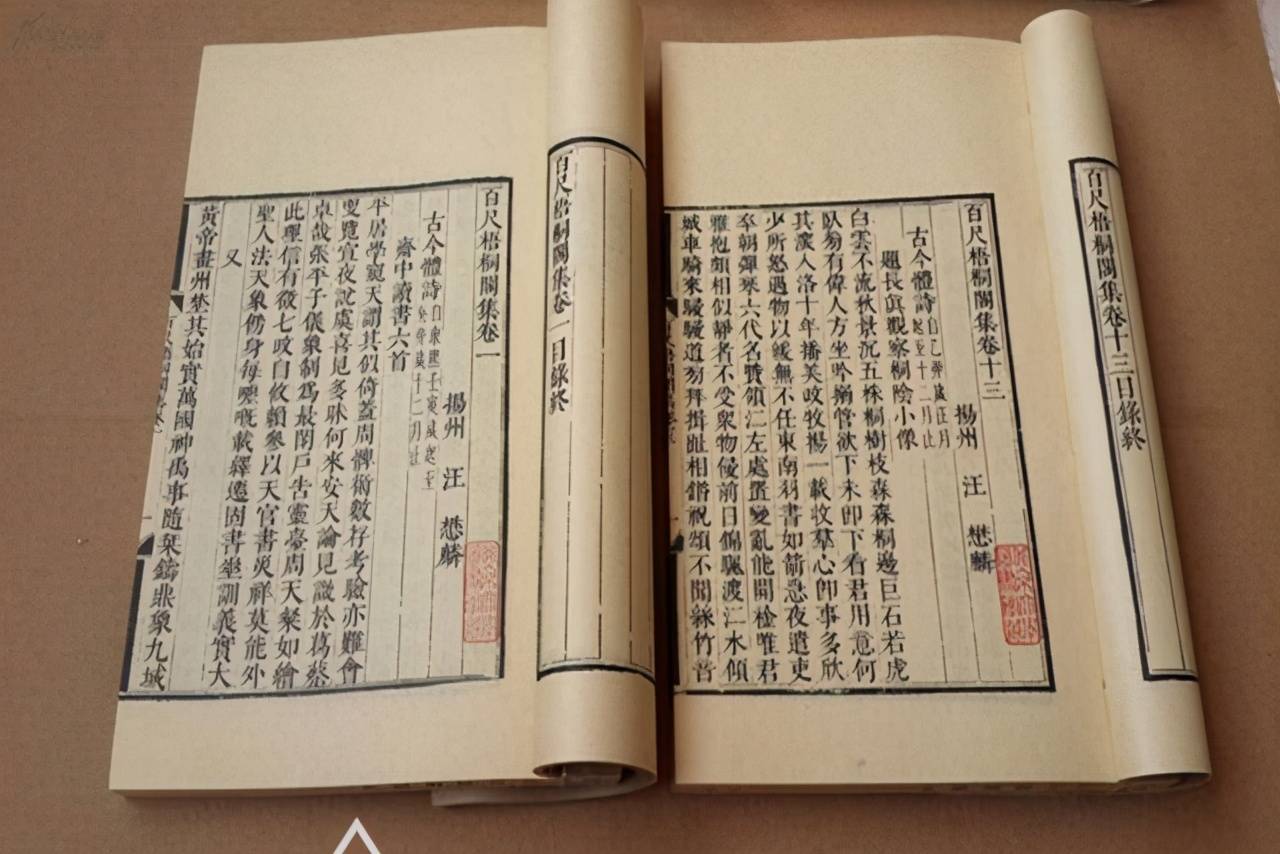 百尺梧桐閣集卷十三目錄終
百尺梧桐閣集卷十三
揚州 汪 懋麟
古今體詩
自乙卯歲正月
起至十二月止
題長眞觀察桐陰小像
白雲不流秋景沉五株桐樹枝森森桐邊巨石若虎
臥旁有偉人方坐吟獺管欲下未卽下看君用意何
其深入洛十年播美政牧揚一載收羣心卽事多欣
少所怒遇物以緩無不任東南羽書如箭急夜遣吏
卒朝彈琴六代名賢領江左處置變亂能開檢唯君
雅抱頗相似靜者不受衆物侵前日錦颿渡江水傾
城車騎來駸駸道旁拜揖趾相錯祝頌不聞絲竹音
百尺梧桐閣集卷一目錄終
百尺梧桐閣集卷一
揚州 汪 懋麟
古今體詩
自康熙壬寅歲起至
歲十二月止
齋中讀書六首
平居學窺天謂其似倚蓋周髀術數存考驗亦難會
更覽宣夜說虞喜見多昧何來安天論見譏於葛
卓哉張平子儀象制爲最閉戶告靈臺周天桼如繪
此理信有徵七政自攸賴參以天官書災祥莫能外
聖人法天象傍身每 旣載驛遞固書坐訓義實大
又
黃帝畫州埜其始實萬國神禹事隨栞鑄鼎象九域